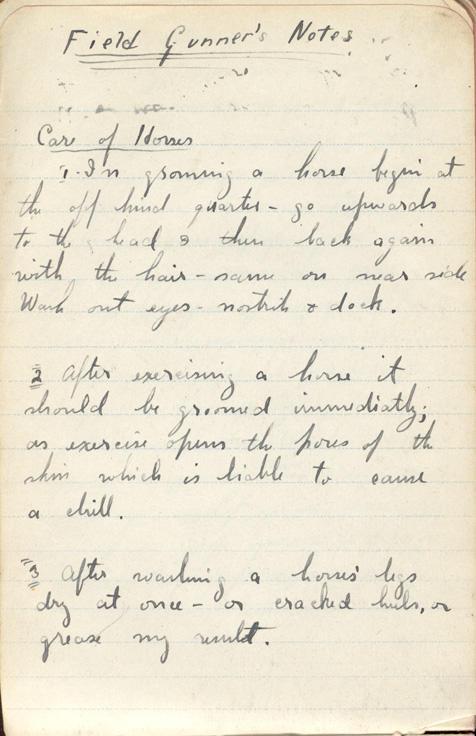 Field Gunner's Notes
Care of Horses
1. In grooming a horse begin at
the off hind quarter - go upwards
to the head & then back again
with the hair - same on near side
Wash out eyes - nostrils & dock.
2 After exercising a horse it
should be groomed immediatly;
as exercise opens the pores of the
skin which is liable to cause
a chill.
3 After washing a horses legs
dry at once - or cracked heels, or
grease my result.